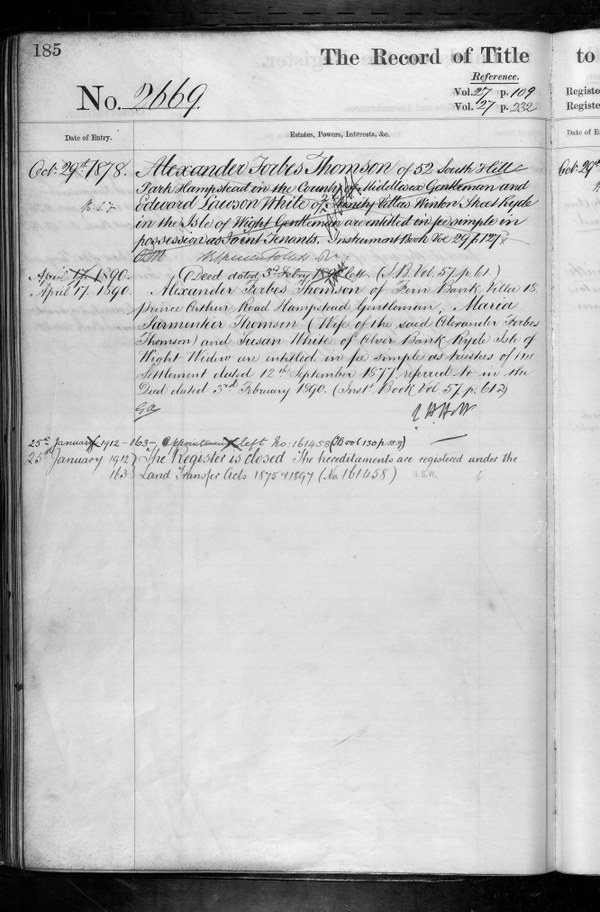 185
The Record of Title
to
No. 2669.
Reference.
Vol. 27 p. 109
Vol. 27 p. 232
Registe
Registe
Date of Entry.
Estates, Powers, Interests, &c.
Date of E
Oct. 29th 1878. Alexander Forbes Thomson of 52 South Hill
Park Hampstead in the County of Middlesex Gentleman and
Edward Lawson White of Villas Winton Street Ryde
in the Isle of Wight Gentleman are entitled in fee simple in
possession as Joint Tenants. Instrument Book Vol 29 p. 127
Oct. 29th
April 17. 1890. (Deed dated 3rd Feby 1890 left (I.B. Vol. 57. p. 61.)
April 17. 1890. Alexander Forbes Thomson of Fern Bank Villa 18
Prince Arthur Road Hampstead Gentleman, Maria
Parmenter Thomson (Wife of the said Alexander Forbes
Thomson) and Susan White of Alver Bank Ryde Isle of
Wight Widow are entitled in fee simple as trustees of the
Settlement dated 12th September 1877 referred to in the
Deed dated 3rd February 1890. (Inst. Book Vol. 57. p. 612)
25th January 1912 - 163 - Appointment left No: 161458 (Book 130 p.
25th January 1912 The Register is closed The hereditaments are registered under the
163 Land Transfer Acts 1875 & 1897 (No. 161458)